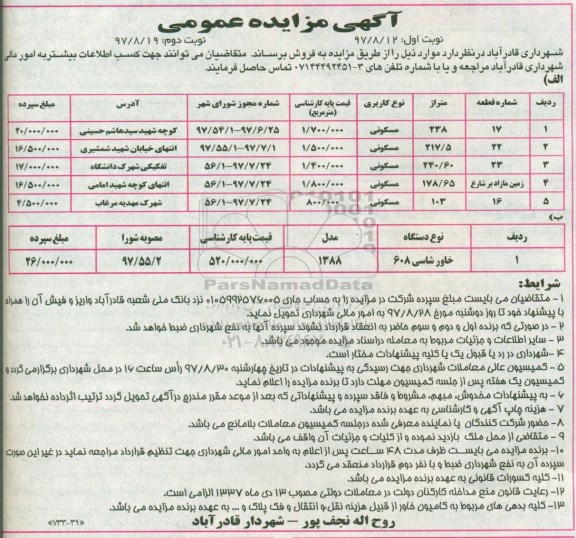 آگهی مزایده عمومی
نوبت اول: ۹۷/۸/۱۲ نوبت دوم: ۹۷/۸/۱۹
شهرداری قادرآباد در نظر دارد موارد ذیل را از طریق مزایده به فروش برساند. متقاضیان می توانند جهت کسب اطلاعات بیشتر به امور مالی
شهرداری قادرآباد مراجعه و یا با شماره تلفن های ۳-۰۷۱۴۴۴۹۲۴۵۱ تماس حاصل فرمایند.
الف)
ردیف شماره قطعه متراژ نوع کاربری قیمت پایه کارشناسی (مترمربع) شماره مجوز شورای شهر آدرس مبلغ سپرده
۱ ۱۷ ۲۳۸ مسکونی ۱/۷۰۰/۰۰۰ ۹۷/۵۴/۱-۹۷/۶/۲۵ کوچه شهید سیدهاشم حسینی ۲۰/۰۰۰/۰۰۰
۲ ۲۲ ۲۱۷/۵ مسکونی ۱/۵۰۰/۰۰۰ ۹۷/۵۵/۱-۹۷/۷/۱ انتهای خیابان شهید شمشیری ۱۶/۵۰۰/۰۰۰
۳ ۲۳ ۲۴۰/۶۰ مسکونی ۱/۴۰۰/۰۰۰ ۵۶/۱-۹۷/۷/۲۴ تفکیکی شهرک دانشگاه ۱۷/۰۰۰/۰۰۰
۴ زمین مازاد بر شارع ۱۷۸/۶۵ مسکونی ۱/۸۰۰/۰۰۰ ۵۶/۱-۹۷/۷/۲۴ انتهای کوچه شهید امامی ۱۶/۵۰۰/۰۰۰
۵ ۱۶ ۱۰۳ مسکونی ۸۰۰/۰۰۰ ۵۶/۱-۹۷/۷/۲۴ شهرک مهدیه مرغاب ۴/۵۰۰/۰۰۰
ب)
ردیف نوع دستگاه مدل قیمت پایه کارشناسی مصوبه شورا مبلغ سپرده
۱ خاور شاسی ۶۰۸ ۱۳۸۸ ۵۲۰/۰۰۰/۰۰۰ ۹۷/۵۵/۲ ۲۶/۰۰۰/۰۰۰
ParsNamadData
شرایط:
۱ - متقاضیان می بایست مبلغ سپرده شرکت در مزایده را به حساب جاری ۰۱۰۵۹۹۲۵۷۶۰۰۵ نزد بانک ملی شعبه قادرآباد واریز و فیش آن را همراه
با پیشنهاد خود تا روز دوشنبه مورخ ۹۷/۸/۲۸ به امور مالی شهرداری تحویل نماید.
۲ - در صورتی که برنده اول و دوم و سوم حاضر به انعقاد قرارداد نشوند سپرده آنها به نفع شهرداری ضبط خواهد شد.
۳ - سایر اطلاعات و جزئیات مربوط به معامله در اسناد مزایده موجود می باشد.
۴ - شهرداری در رد یا قبول یک یا کلیه پیشنهادات مختار است.
۵ - کمیسیون عالی معاملات شهرداری جهت رسیدگی به پیشنهادات در تاریخ چهارشنبه ۹۷/۸/۳۰ رأس ساعت ۱۶ در محل شهرداری برگزار می گردد و
کمیسیون یک هفته پس از جلسه کمیسیون مهلت دارد تا برنده مزایده را اعلام نماید.
۶ - به پیشنهادات مخدوش، مبهم، مشروط و فاقد سپرده و پیشنهاداتی که بعد از موعد مقرر مندرج در آگهی تحویل گردد ترتیب اثر داده نخواهد شد.
۷ - هزینه چاپ آگهی و کارشناسی به عهده برنده مزایده می باشد.
۸ - حضور شرکت کنندگان یا نماینده معرفی شده در جلسه کمیسیون معاملات بلامانع می باشد.
۹ - متقاضی از محل ملک بازدید نموده و از کلیات و جزئیات آن واقف می باشد.
۱۰ - برنده مزایده می بایست ظرف مدت ۴۸ ساعت پس از اعلام به واحد امور مالی شهرداری جهت تنظیم قرارداد مراجعه نماید در غیر این صورت
سپرده آن به نفع شهرداری ضبط و با نفر دوم قرارداد منعقد می گردد.
۱۱ - کلیه کسورات قانونی به عهده برنده مزایده می باشد.
۱۲ - رعایت قانون منع مداخله کارکنان دولت در معاملات دولتی مصوب ۱۳ دی ماه ۱۳۳۷ الزامی است.
۱۳ - کلیه بدهی های مربوط به کامیون خاور از قبیل هزینه نقل و انتقال و فک پلاک و ... به عهده برنده مزایده می باشد.
روح اله نجف پور – شهردار قادرآباد
«۷۳۳-۳۴»